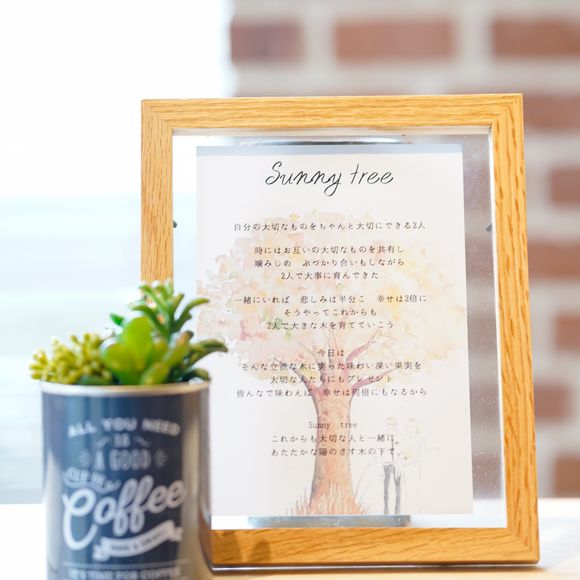 Sunny tree
自分の大切なものをちゃんと大切にできる2人
時にはお互いの大切なものを共有し
噛みじめ　ぶつかり合いもしながら
2人で大事に育んできた
一緒にいれば　悲しみは半分こ　幸せは2倍に
そうやってこれからも
2人で大きな木を育てていこう
今日は
そんな立派な木に実った味わい深い果実を
大切な人たちにもプレゼント
皆んなで味わえば　幸せは何倍にもなるから
Sunny tree
これからも大切な人と一緒に
あたたかな陽のさす木の下で
ALL YOU NEED
IS
A GOOD
CUP OF
Coffee